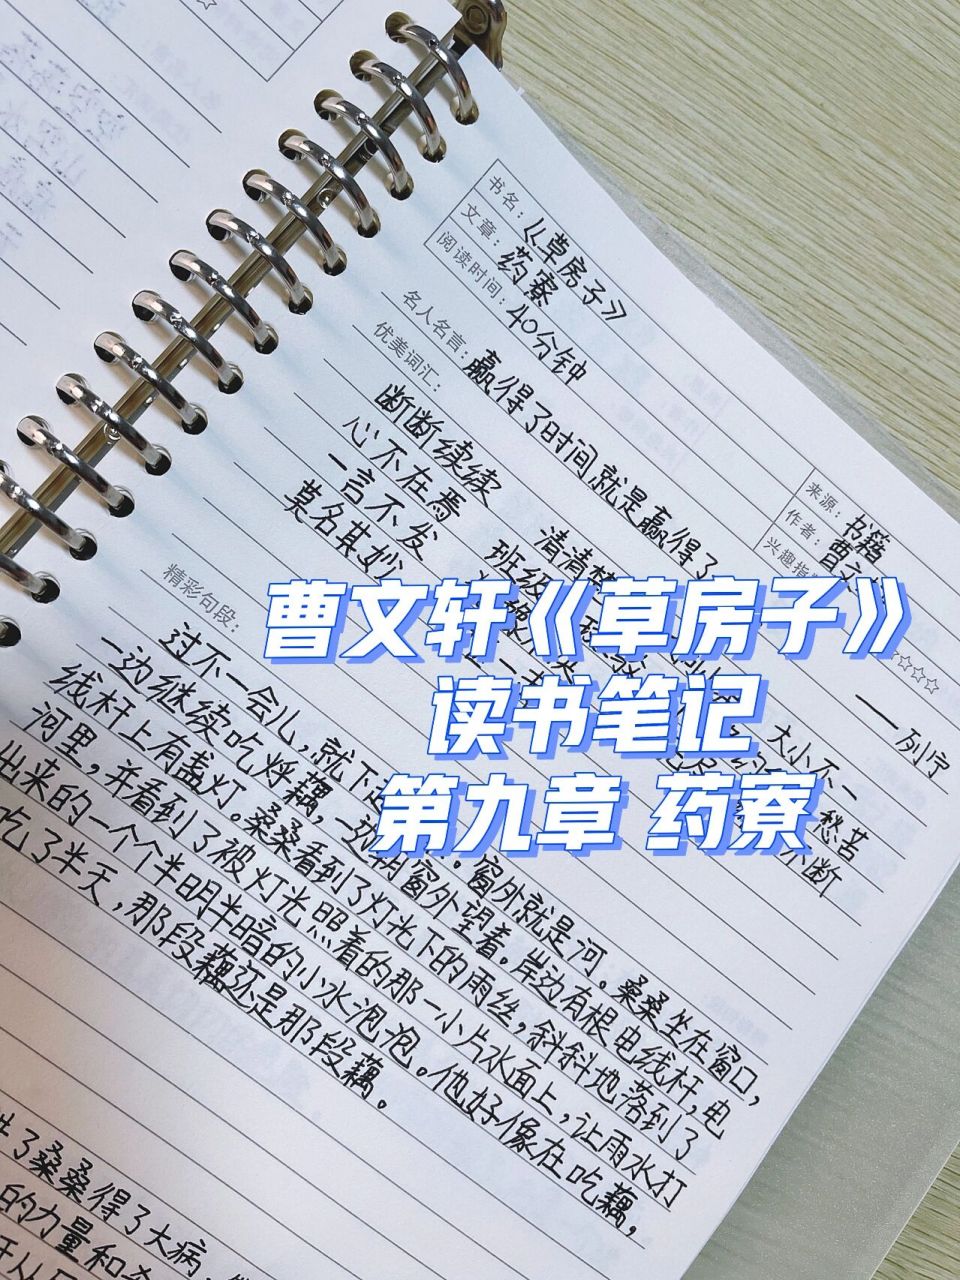 书名：《草房子》
文章：药寮
阅读时间：40分钟
来源：书籍
作者：曹文
兴趣指
☆☆☆☆
名人名言：赢得了时间，就是赢得了
——列宁
优美词汇：
断断续续 清清楚 大小不一
心不在焉 班级 愁苦
一言不发 不断
莫名其妙
曹文轩《草房子》
读书笔记
第九章 药寮
精彩句段：
过不一会儿，就下起 。窗外就是河。桑桑坐在窗口，
一边继续吃烀藕，一边朝窗外望着。岸边有根电线杆，电
线杆上有盏灯。桑桑看到了灯光下的雨丝，斜斜地落到了
河里，并看到了被灯光照着的那一小片水面上，让雨水打
出来的一个个半明半暗的小水泡泡。他好像在吃藕，
吃了半天，那段藕还是那段藕。
了桑桑得了大病，
的力量和